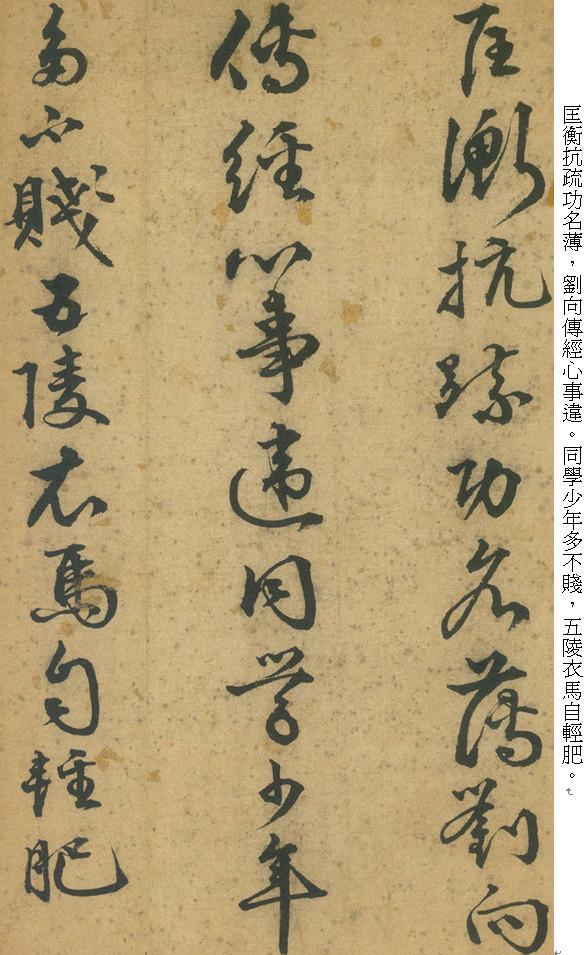 匡衡抗疏功名薄，劉向傳經心事違。同學少年多不賤，五陵衣馬自輕肥。
匡衡抗疏功名薄劉向
傳經心事違同學少年
多不賤五陵衣馬自輕肥